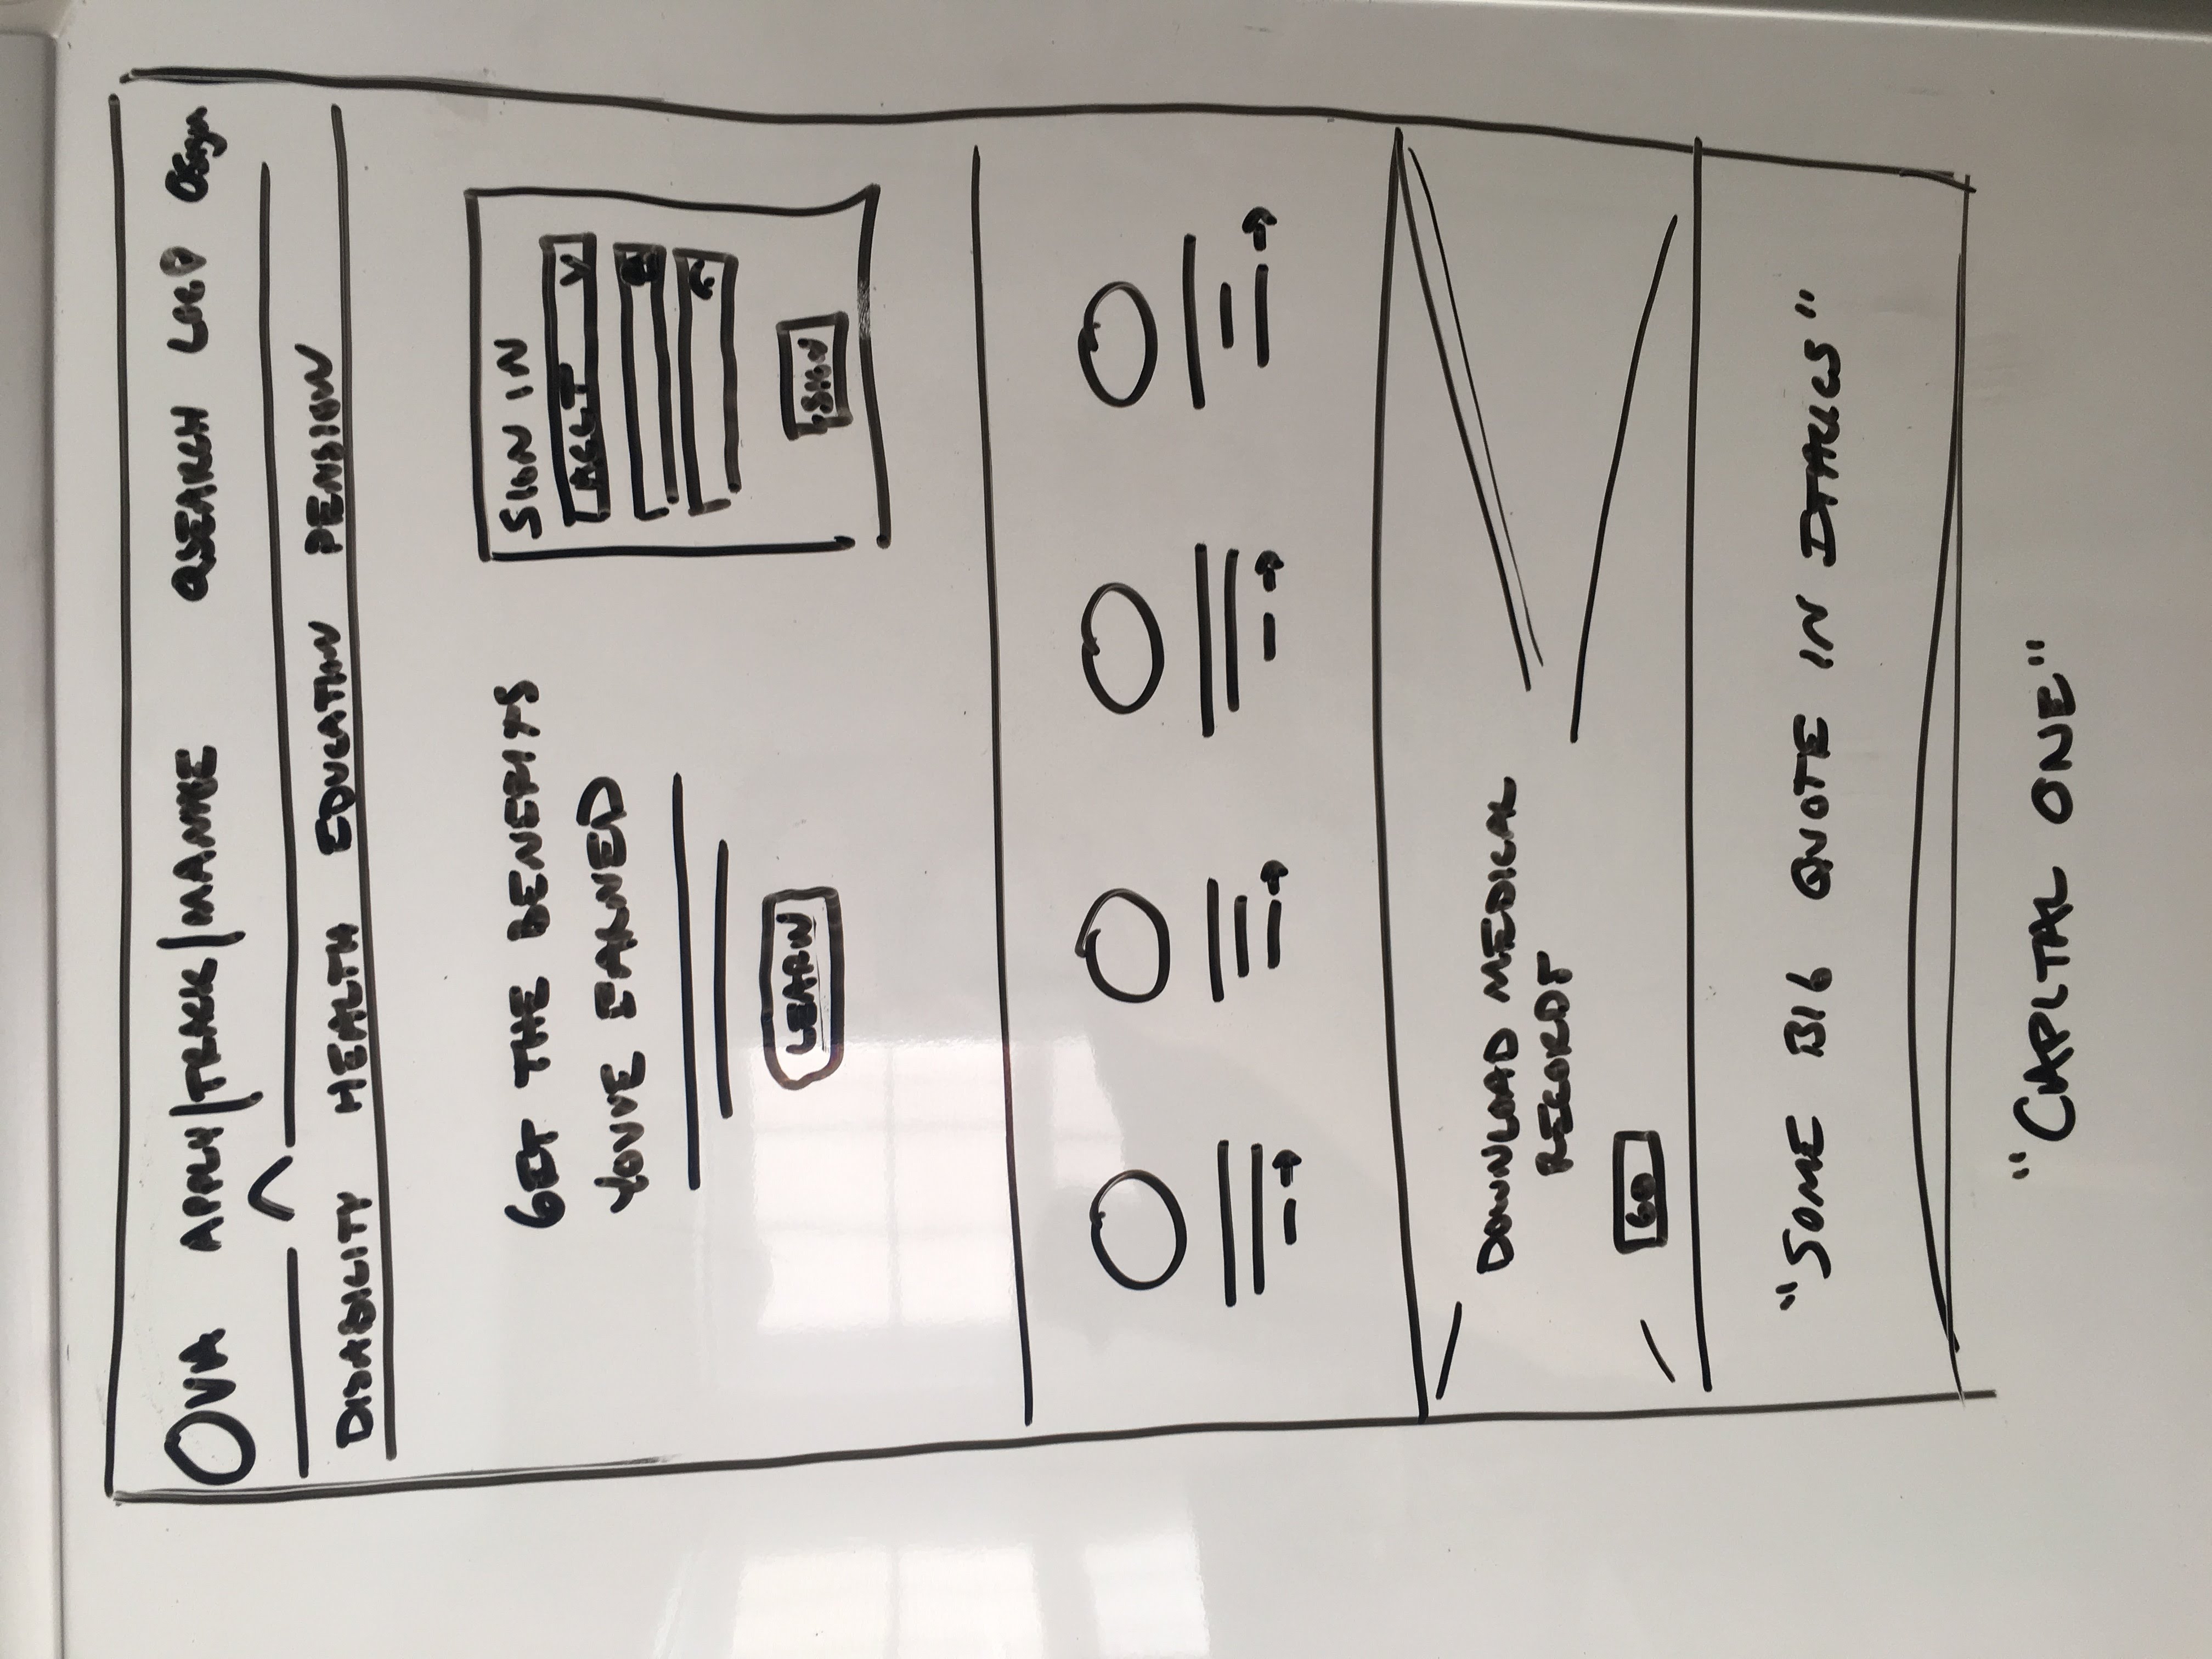 VA APPLY/TRACK/MANAGE SEARCH LOC Sign
DISABILITY HEALTH EDUCATION PENSION
GET THE BENEFITS
YOUVE EARNED
LEARN
SIGN IN
ACCT
SIGN
DOWNLOAD MEDICAL
RECORDS
GO
"SOME BIG QUOTE IN ITALICS"
"CAPITAL ONE"